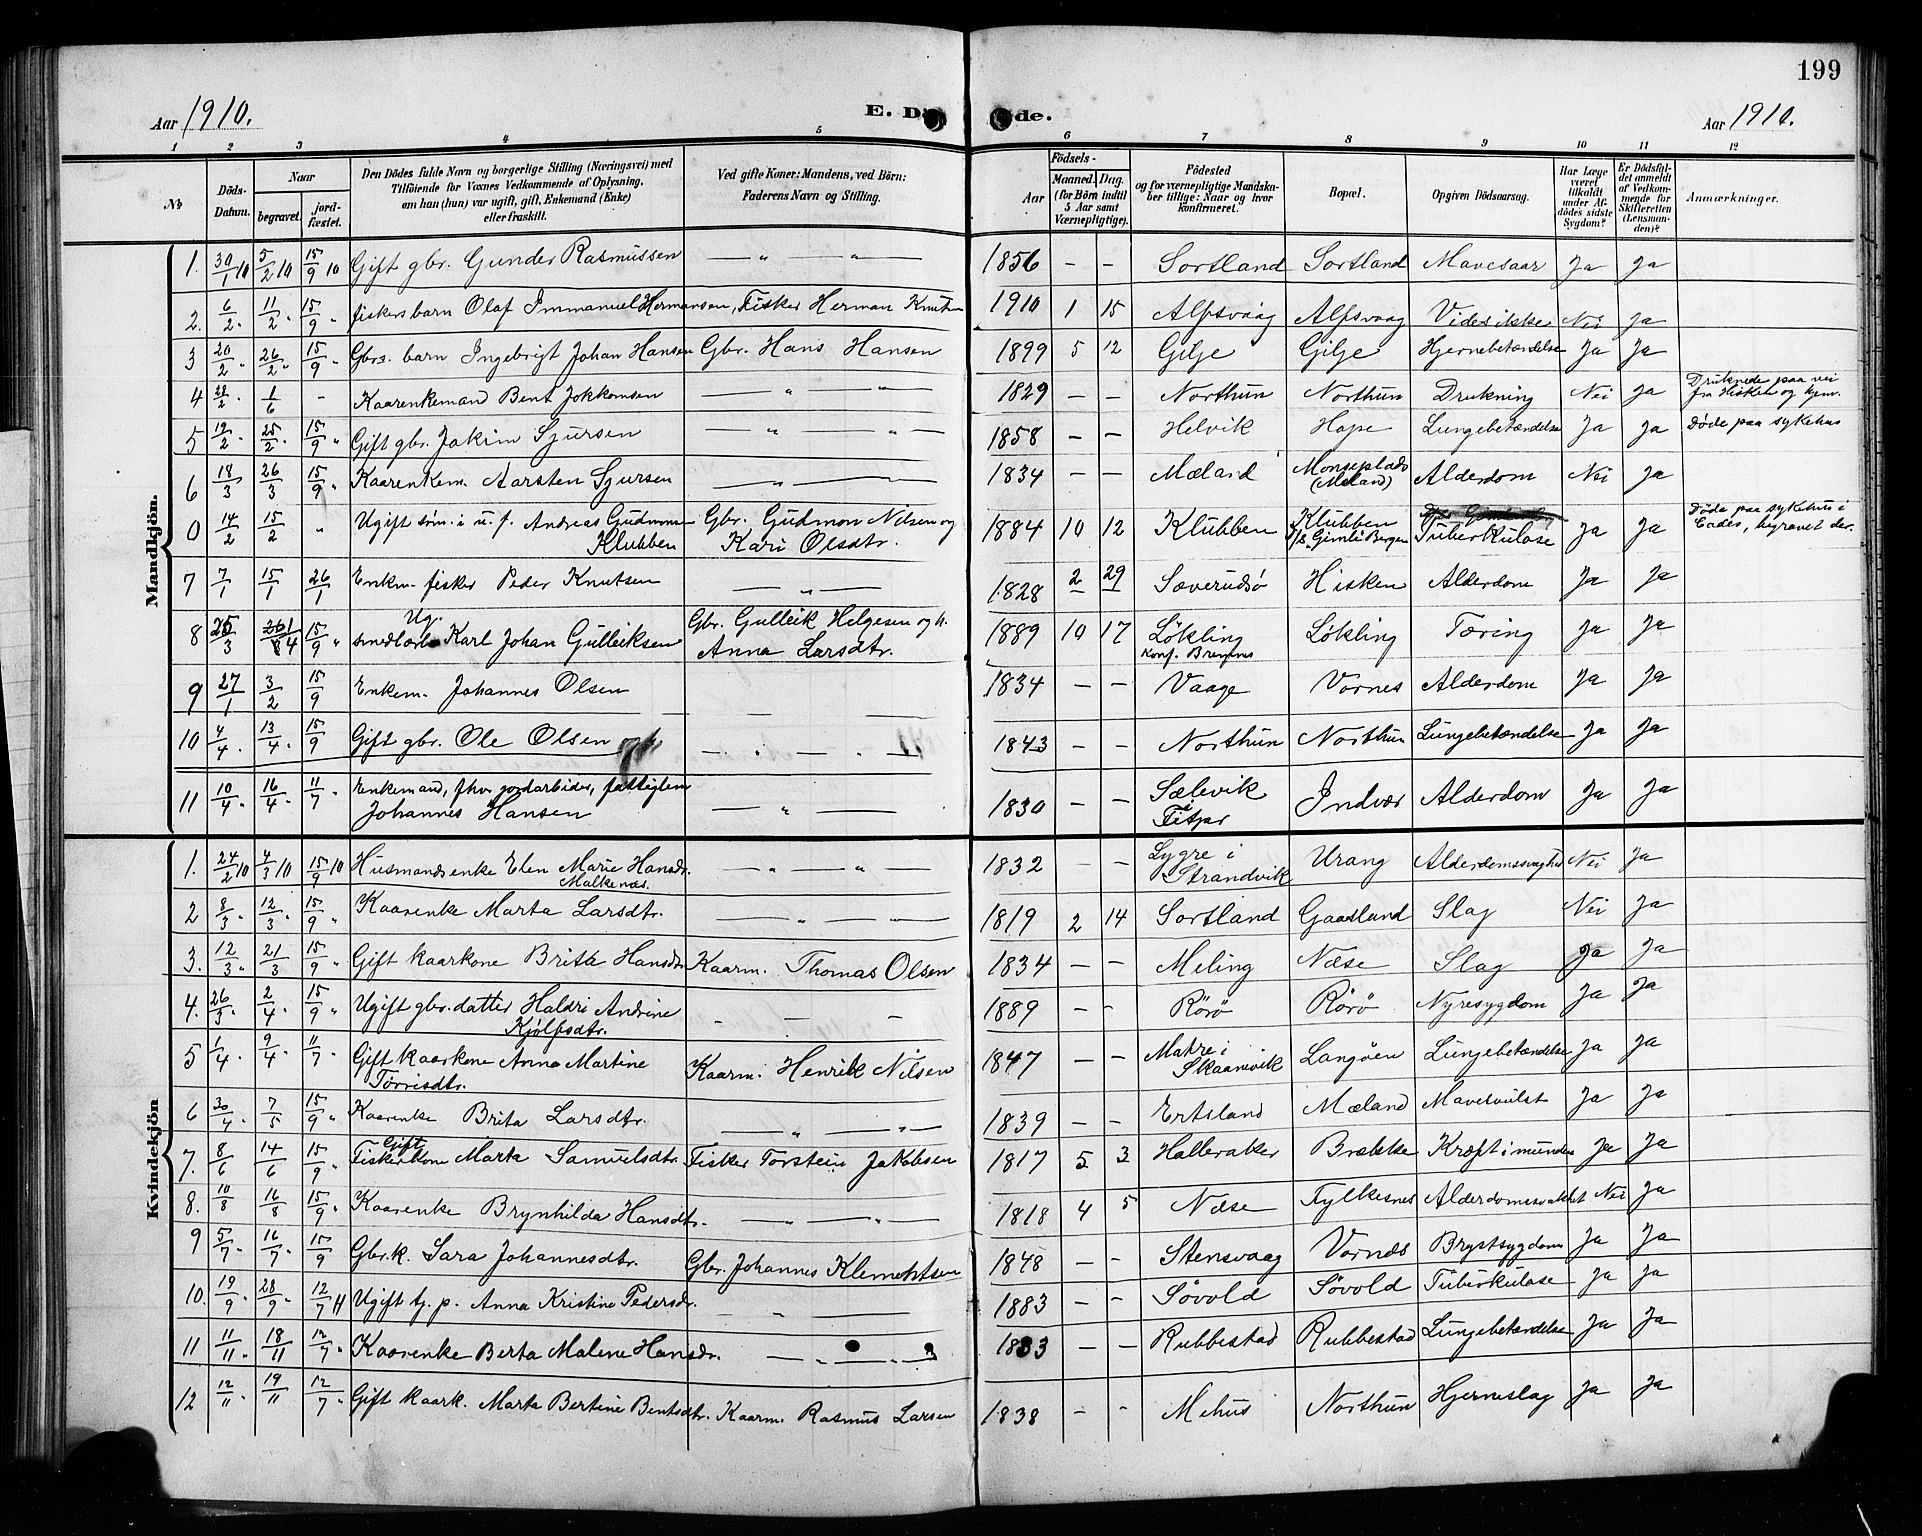 199
Aar 1910.
E. Døde.
Aar 1910.
1 2 3 4 5 6 7 8 9 10 11 12
№ | Döds-Datum. | Naar begravet. | jord-fæstet. | Den Dödes fulde Navn og borgerlige Stilling (Næringsvei) med Tilföiende for Voxnes Vedkommende af Oplysning, om han (hun) var ugift, gift, Enkemand (Enke) eller fraskilt. | Ved gifte Koner: Mandens, ved Börn: Faderens Navn og Stilling. | Födsels- Aar | Maaned. Dag. (for Börn indtil 5 Aar samt Værnepligtige). | Födested og for værnepligtige Mandska-ber tillige: Naar og hvor konfirmeret. | Bopæl. | Opgiven Dödsaarsag. | Har Læge været tilkaldt under Af-dödes sidste Sygdom? | Er Dödsful-det anmeldt af Vedkom-mende for Skifteretten (Lensman-den)? | Anmærkninger.
Mandkjön.
1. 30/1 10 5/2 10 15/9 10 Gift gbr. Gunder Rasmussen — „ — „ — 1856 – – Sortland Sortland Mavesaar Ja Ja
2. 6/2 „ 11/2 „ 15/9 „ fiskers barn Olaf Immanuel Hermansen, Fisker Herman Knutsen 1910 1 15 Alfsvaag Alfsvaag Vides ikke Nei Ja
3 20/2 „ 26/2 „ 15/9 „ Gbrs. barn Ingebrigt Johan Hansen Gbr. Hans Hansen 1899 5 12 Gilje Gilje Hjernebetændelse Ja Ja
4 28/2 „ 1/6 – Kaarenkemand Bent Jokkomsen — „ — „ — 1829 – – Northun Northun Drukning Nei Ja Druknede paa vei
fra Hisken og hjem.
5 19/2 „ 25/2 „ 15/9 „ Gift gbr. Jakim Sjursen — „ — „ — 1858 – – Helvik Hope Lungebetændelse Ja Ja Døde paa sykehus
6 18/3 26/3 15/9 „ Kaarenkem. Aarsten Sjursen — „ — 1834 – – Mæland Monseplads Alderdom Nei Ja
(Mæland)
0 14/2 15/2 „ Ugift søn i u. f. Andreas Gudmon Gbr. Gudmon Nilsen og 1884 10 12 Klubben Klubben Tuberkulose Ja Ja Døde paa sykehus i
Klubben Kari Olsdtr. D/S „Gimle“ Bergen begravet der.
7 7/1 15/1 26/1 Enkm. fisker Peder Knutsen — „ — 1828 2 29 Sæverudsø Hisken Alderdom Ja Ja
8 25/3 1/4 15/9 „ Ug. smedlærl. Karl Johan Gulleiksen Gbr. Gulleik Helgesen og h. 1889 10 17 Løkling Løkling Tæring Ja Ja
Anna Larsdtr. Konf. Bremnes
9 27/1 3/2 15/9 Enkem. Johannes Olsen – – 1834 – – Vaage Vornes Alderdom Ja Ja
10 4/4. 13/4. 15/9 Gift gbr. Ole Olsen – „ – „ – 1843 – – Northun Northun Lungebetændelse Ja Ja
11 10/4. 16/4. 11/7. Enkemand, fhv. jordarbeider, fattiglem — „ — 1830 – – Sælevik Indvær Alderdom Ja Ja
Johannes Hansen i Fitjar
Kvindekjön
1. 24/2 10 4/3 10 15/9 10 Husmandsenke Elen Marie Hansdr. — „ — „ — 1832 – – Lygre i Urang Alderdomssvaghed Nei Ja
Malkenæs. Strandvik
2 8/3. 12/3. 15/9 „ Kaarenke Marta Larsdtr. — „ — „ — 1819 2 14 Sortland Gaasland Slag Nei Ja
3. 12/3 „ 21/3 15/9 „ Gift kaarkone Brita Hansdtr. Kaarm. Thomas Olsen 1834 – – Meling Næse Slag Ja Ja
4. 26/3. 2/4. 15/9 „ Ugift gbr. datter Haldri Andrine – – – 1889 – – Rörö Rörö Nyresygdom Ja Ja
Kjølfsdtr.
5 1/4. 9/4. 11/7. Gift kaarkone Anna Martine Kaarm. Henrik Nilsen 1847 – – Matre i Langøen Lungebetændelse Ja Ja
Torrisdtr. Skaanevik
6 30/4. 7/5 15/9 „ Kaarenke Brita Larsdtr. — „ — „ — 1839 – – Ertsland Mæland Mavesvulst Ja Ja
7. 8/6 14/6 15/9 Gift Fiskerkone Marta Samuelsdtr. Fisker Torstein Jakobsen 1817 5 3 Halleraker Brække Kræft i munden Ja Ja
8. 10/8 16/8 15/9 „ Kaarenke Brynhilda Hansdtr. — „ — „ — 1818 4 5 Næse Fylkesnes Alderdomssvakhet Nei Ja
9 5/7. 16/7. 15/9 Gbr.k. Sara Johannesdtr. Gbr. Johannes Klemetsen 1848 – – Stensvaag Vornæs Brystsygdom Ja Ja
10. 19/9. 28/9. 12/7 11 Ugift tj. p. Anna Kristine Pedersdr. – „ – 1883 – – Søvold Søvold Tuberkulose Ja Ja
11 11/11. 18/11 12/7 „ Kaarenke Berta Malene Hansdr. — „ — „ 1833 – – Rubbestad Rubbestad Lungebetændelse Ja Ja
12 12/11 19/11 12/7. Gift kaark. Marta Bertine Bentsdtr. Kaarm. Rasmus Larsen 1838 – – Mehus Northun Hjerneslag Ja Ja